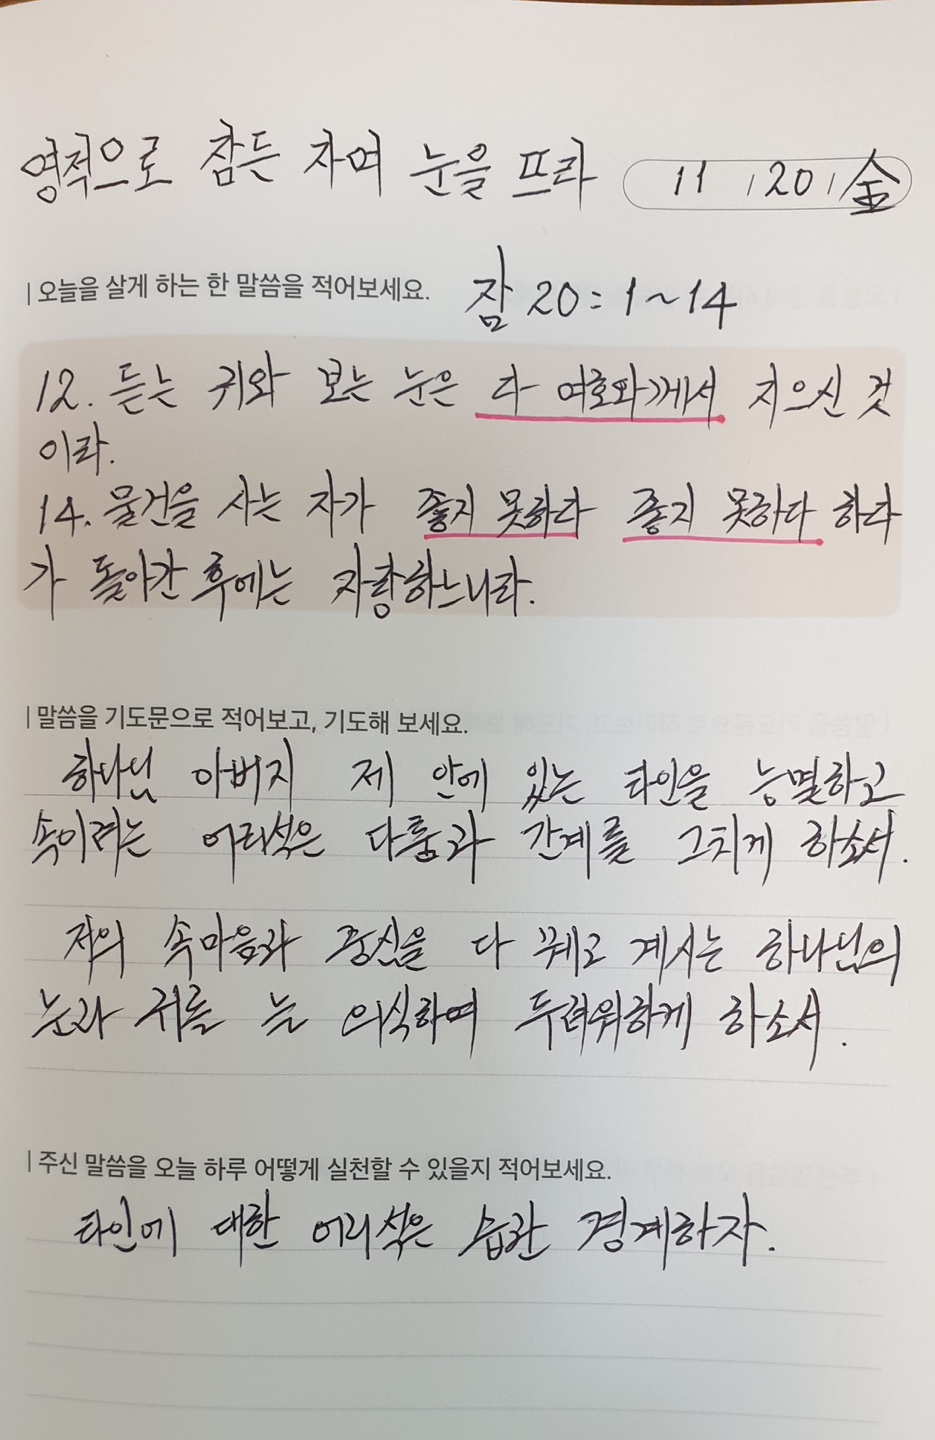 영적으로 잠든 자여 눈을 뜨라 11 / 20 / 金
| 오늘을 살게 하는 한 말씀을 적어보세요. 잠 20:1~14
12. 듣는 귀와 보는 눈은 다 여호와께서 지으신 것
이라.
14. 물건을 사는 자가 좋지 못하다 좋지 못하다 하다
가 돌아간 후에는 자랑하느니라.
| 말씀을 기도문으로 적어보고, 기도해 보세요.
하나님 아버지 제 안에 있는 타인을 능멸하고
속이려는 어리석은 다툼과 간계를 그치게 하소서.
저의 속마음과 중심을 다 꿰고 계시는 하나님의
눈과 귀를 늘 의식하며 두려워하게 하소서.
| 주신 말씀을 오늘 하루 어떻게 실천할 수 있을지 적어보세요.
타인에 대한 어리석은 습관 경계하자.